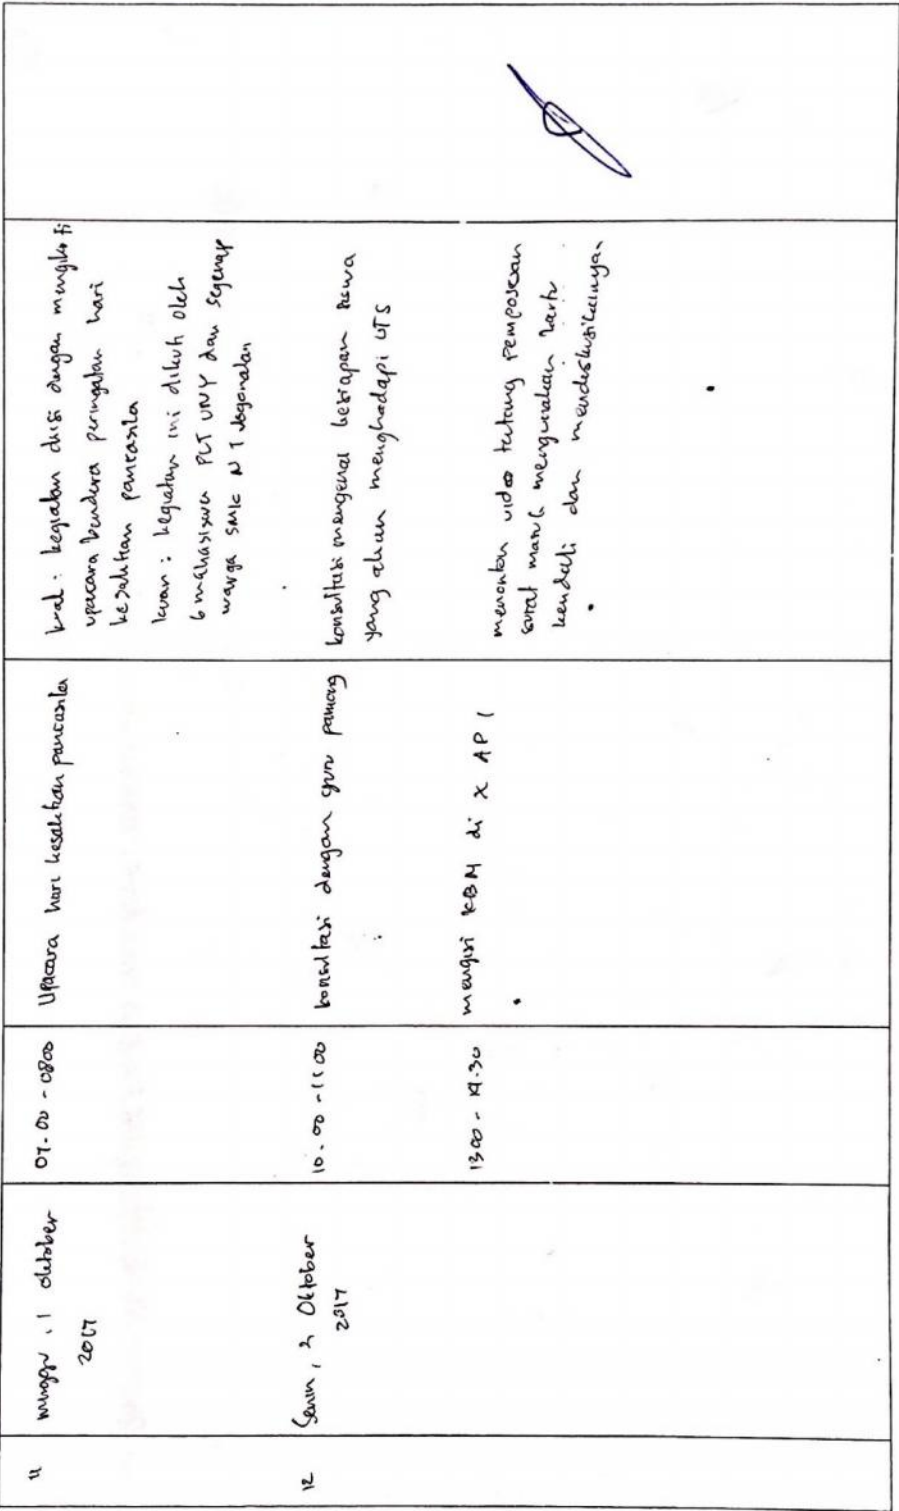 11
minggu, 1 oktober
2017
07.00 - 0800
Upacara hari kesaktian pancasila
kual : kegiatan diisi dengan mengikuti
upacara bendera peringatan hari
kesaktian pancasila
kuan : kegiatan ini diikuti oleh
6 mahasiswa PLT UNY dan segenap
warga SMK N 1 Jogonalan
12
Senin, 2 Oktober
2017
10.00 - 11 00
konsultasi dengan guru pamong
konsultasi mengenai kesiapan siswa
yang akan menghadapi UTS
13.00 - 14.30
mengisi KBM di X AP 1
menonton video tentang pemposesan
surat masuk menggunakan kartu
kendali dan mendiskusikannya